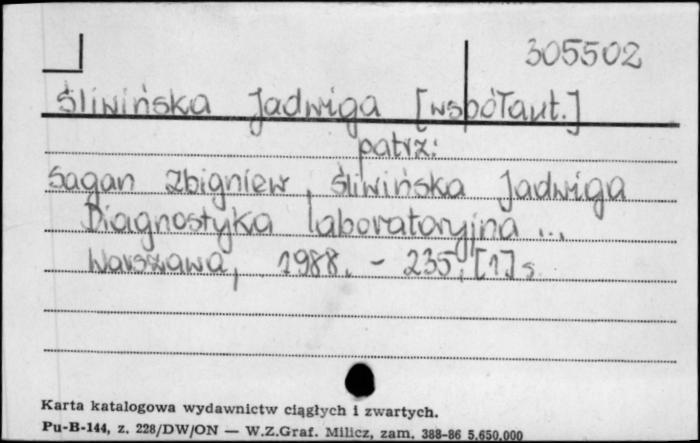 305502
Śliwińska Jadwiga [współaut.]
patrz:
Sagan Zbigniew, Śliwińska Jadwiga
Diagnostyka laboratoryjna ...
Warszawa, 1988. - 235, [1] s
Karta katalogowa wydawnictw ciągłych i zwartych.
Pu-B-144, z. 228/DW/ON — W.Z.Graf. Milicz, zam. 388-86 5.650.000